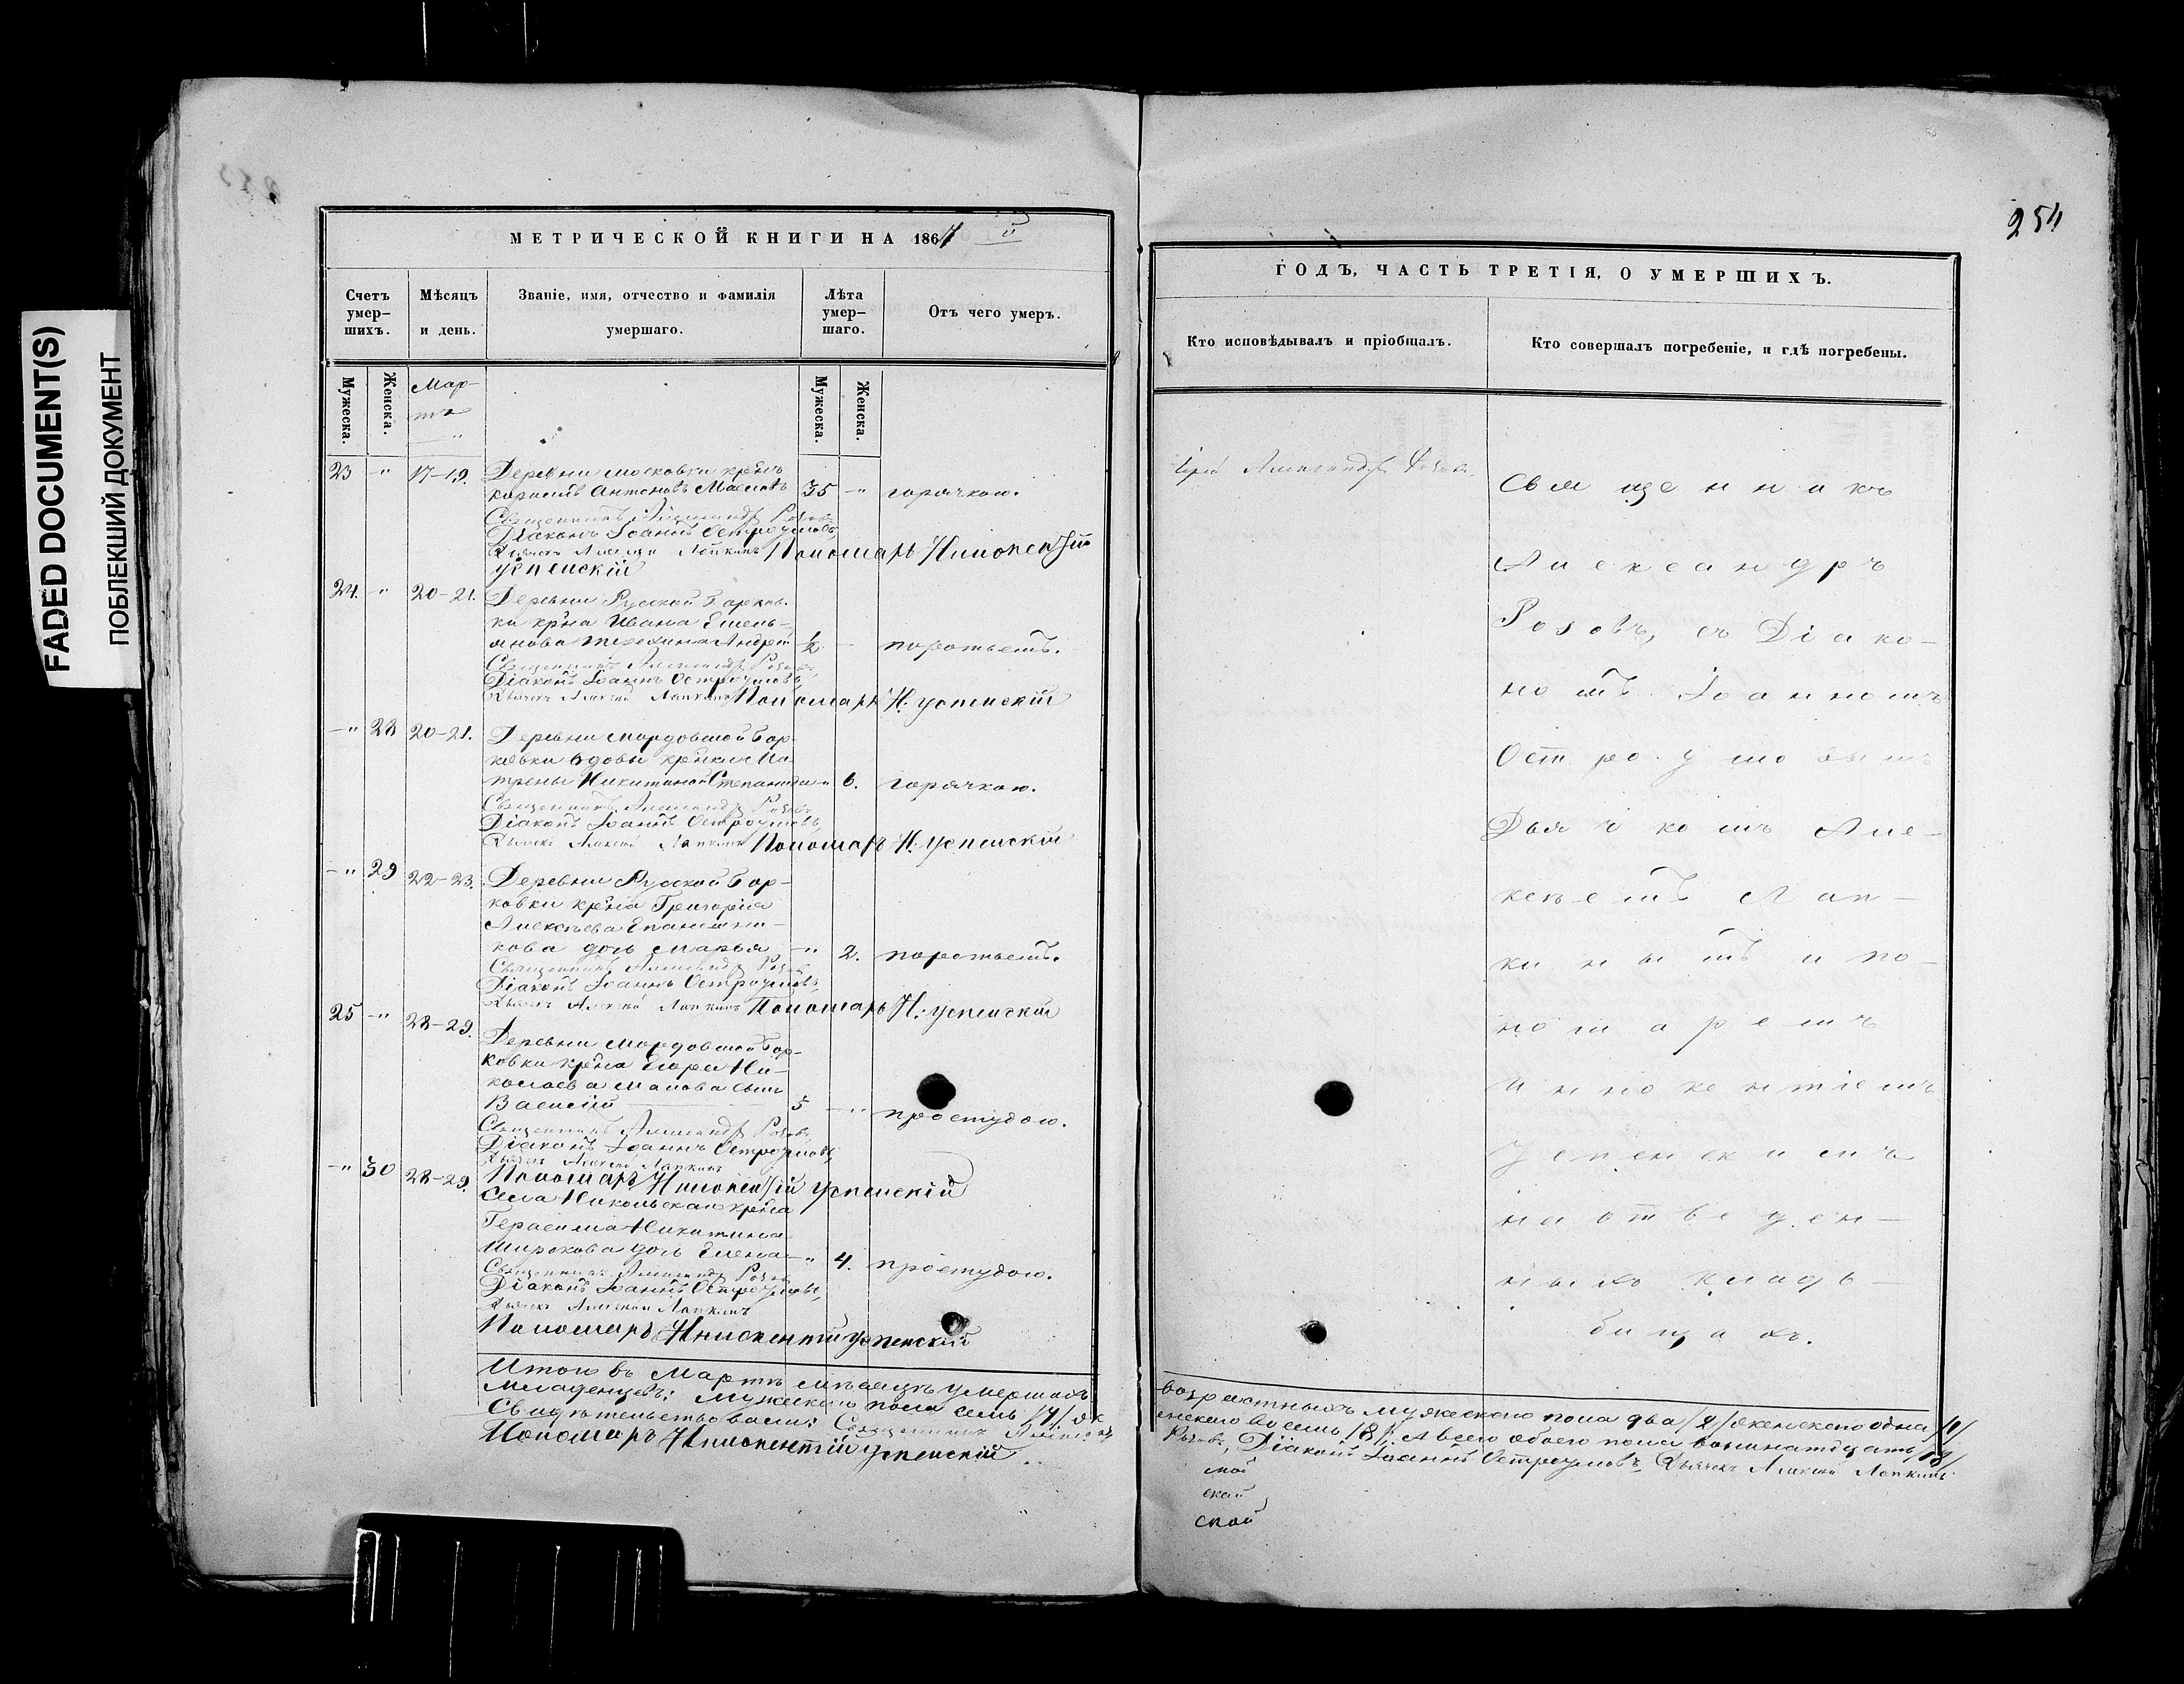 FADED DOCUMENT(S)
ПОБЛЕКШИЙ ДОКУМЕНТ
МЕТРИЧЕСКОЙ КНИГИ НА 1867 й
Счетъ умер-шихъ.
Мѣсяцъ и день.
Званіе, имя, отчество и фамилія умершаго.
Лѣта умер-шаго.
Отъ чего умеръ.
Мужеска.
Женска.
Мар-
та
Мужеска.
Женска.
23 " 17-19. Деревни Московки крѣнъ
Антоновъ 35 " горячкою.
Священникъ Александръ Розовъ
Діаконъ Іоаннъ Остроумовъ,
Дьячекъ Алексѣй Лапкинъ Пономарь Иннокентій
Успенскій
24. " 20-21. Деревни Русской Борков-
ки крѣна Ивана Емель-
янова Андрей ½ - поротьемъ.
Священникъ Александръ Розовъ,
Діаконъ Іоаннъ Остроумовъ,
Дьячекъ Алексѣй Лапкинъ Пономарь И. Успенскій
" 28 20-21. Деревни Мордовской Бор-
ковки вдовы крѣнки Ма-
трены Никитиной " 6. горячкою.
Священникъ Александръ Розовъ,
Діаконъ Іоаннъ Остроумовъ,
Дьячекъ Алексѣй Лапкинъ Пономарь И. Успенскій
" 29 22-23. Деревни Русской Бор-
ковки крѣна Григорія
Алексѣева
кова дочь Марья " 2. поротьемъ.
Священникъ Александръ Розовъ,
Діаконъ Іоаннъ Остроумовъ,
Дьячекъ Алексѣй Лапкинъ Пономарь И. Успенскій
25 " 28-29. Деревни Мордовской Бор-
ковки крѣна Егора Ни-
колаева сынъ
Василій 5 " простудою.
Священникъ Александръ Розовъ,
Діаконъ Іоаннъ Остроумовъ,
Дьячекъ Алексѣй Лапкинъ
" 30 28-29. Пономарь Иннокентій Успенскій
Села Никольскаго крѣна
Герасима Никитина
Широкова дочь Елена " 4. простудою.
Священникъ Александръ Розовъ,
Діаконъ Іоаннъ Остроумовъ,
Дьячекъ Алексѣй Лапкинъ
Пономарь Иннокентій Успенскій
Итого въ Мартѣ мѣсяцѣ умершихъ
Младенцевъ: мужескаго пола семь /7/ ж
Свидѣтельствовали: Священникъ Александръ
Пономарь Иннокентій Успенскій.
254
ГОДЪ, ЧАСТЬ ТРЕТІЯ, О УМЕРШИХЪ.
Кто исповѣдывалъ и пріобщалъ.
Кто совершалъ погребеніе, и гдѣ погребены.
Іерей Александръ Розовъ.
Священникъ
Александръ
Розовъ, съ Діако-
номъ Іоанномъ
Остроумовымъ
Дьячкомъ Але-
ксѣемъ Лап-
кинымъ и по-
номаремъ
Иннокентіемъ
Успенскимъ
на отведен-
ныхъ клад-
бищахъ.
возрастныхъ мужескаго пола два /2/ женскаго одна /1/
енскаго восемь /8/. А всего обоего пола восемнадцать /18/
Розовъ, Діаконъ Іоаннъ Остроумовъ, Дьячекъ Алексѣй Лапкинъ.
ской